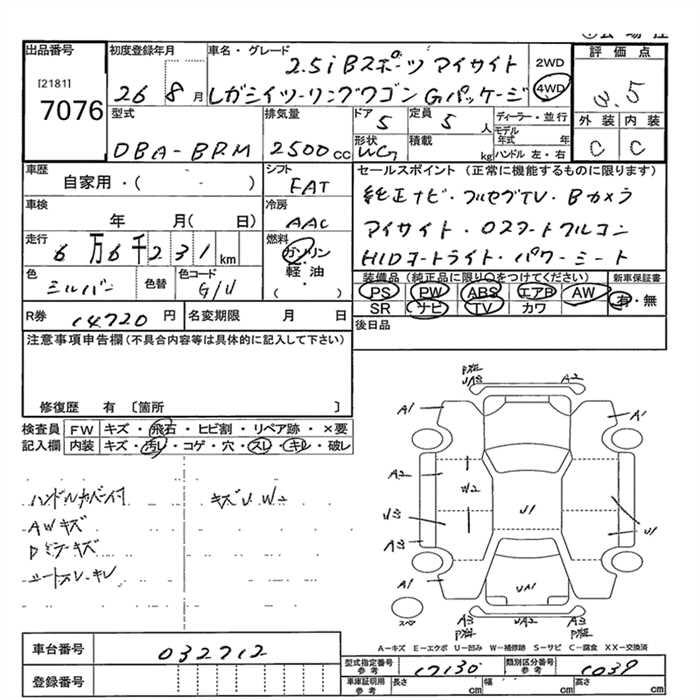 出品番号 初度登録年月 車名・グレード 評価点
[2181] 7076
26 8月
2.5i Bスポーツ アイサイト
レガシイツーリングワゴン Gパッケージ
2WD
4WD
3.5
型式 排気量 ドア 定員 ディーラー・並行 外装 内装
DBA-BRM 2500cc 5 5人 モデル年式 年 C C
形状 WG 積載 kg ハンドル 左・右
車歴 シフト セールスポイント (正常に機能するものに限ります)
自家用・( - ) FAT
純正ナビ・フルセグTV・Bカメラ
車検 冷房
年 月( 日) AAC
アイサイト・
走行 燃料
6万6千231km ガソリン・軽油・( )
HIDヘッドライト・パワーシート
色 色替 色コード
シルバー G1U
装備品 (純正品に限り○をつけてください) 新車保証書
PS PW ABS エアB AW 有・無
SR ナビ TV カワ
R券 14720円 名変期限 月 日
後日品
注意事項申告欄(不具合内容等は具体的に記入して下さい)
修復歴 有 〔箇所 〕
検査員 FW キズ・飛石・ヒビ割・リペア跡・×要
記入欄 内装 キズ・汚レ・コゲ・穴・スレ・キレ・破レ
ハンドルカバー付 キズU W2
AWキズ
Dミラーキズ
シートスレ・キレ
P殖 UA3 A2
A1 A1
A2 W2
U3 U1 U1
A3
A1 UA1
スペア
A3 P殖 UA2 A3 P殖
A-キズ E-エクボ U-凹み W-補修跡 S-サビ C-腐食 XX-交換済
車台番号 032712
登録番号
型式指定番号 参考 17130 類別区分番号 参考 C039
車庫証明用 参考 長さ cm 幅 cm 高さ cm